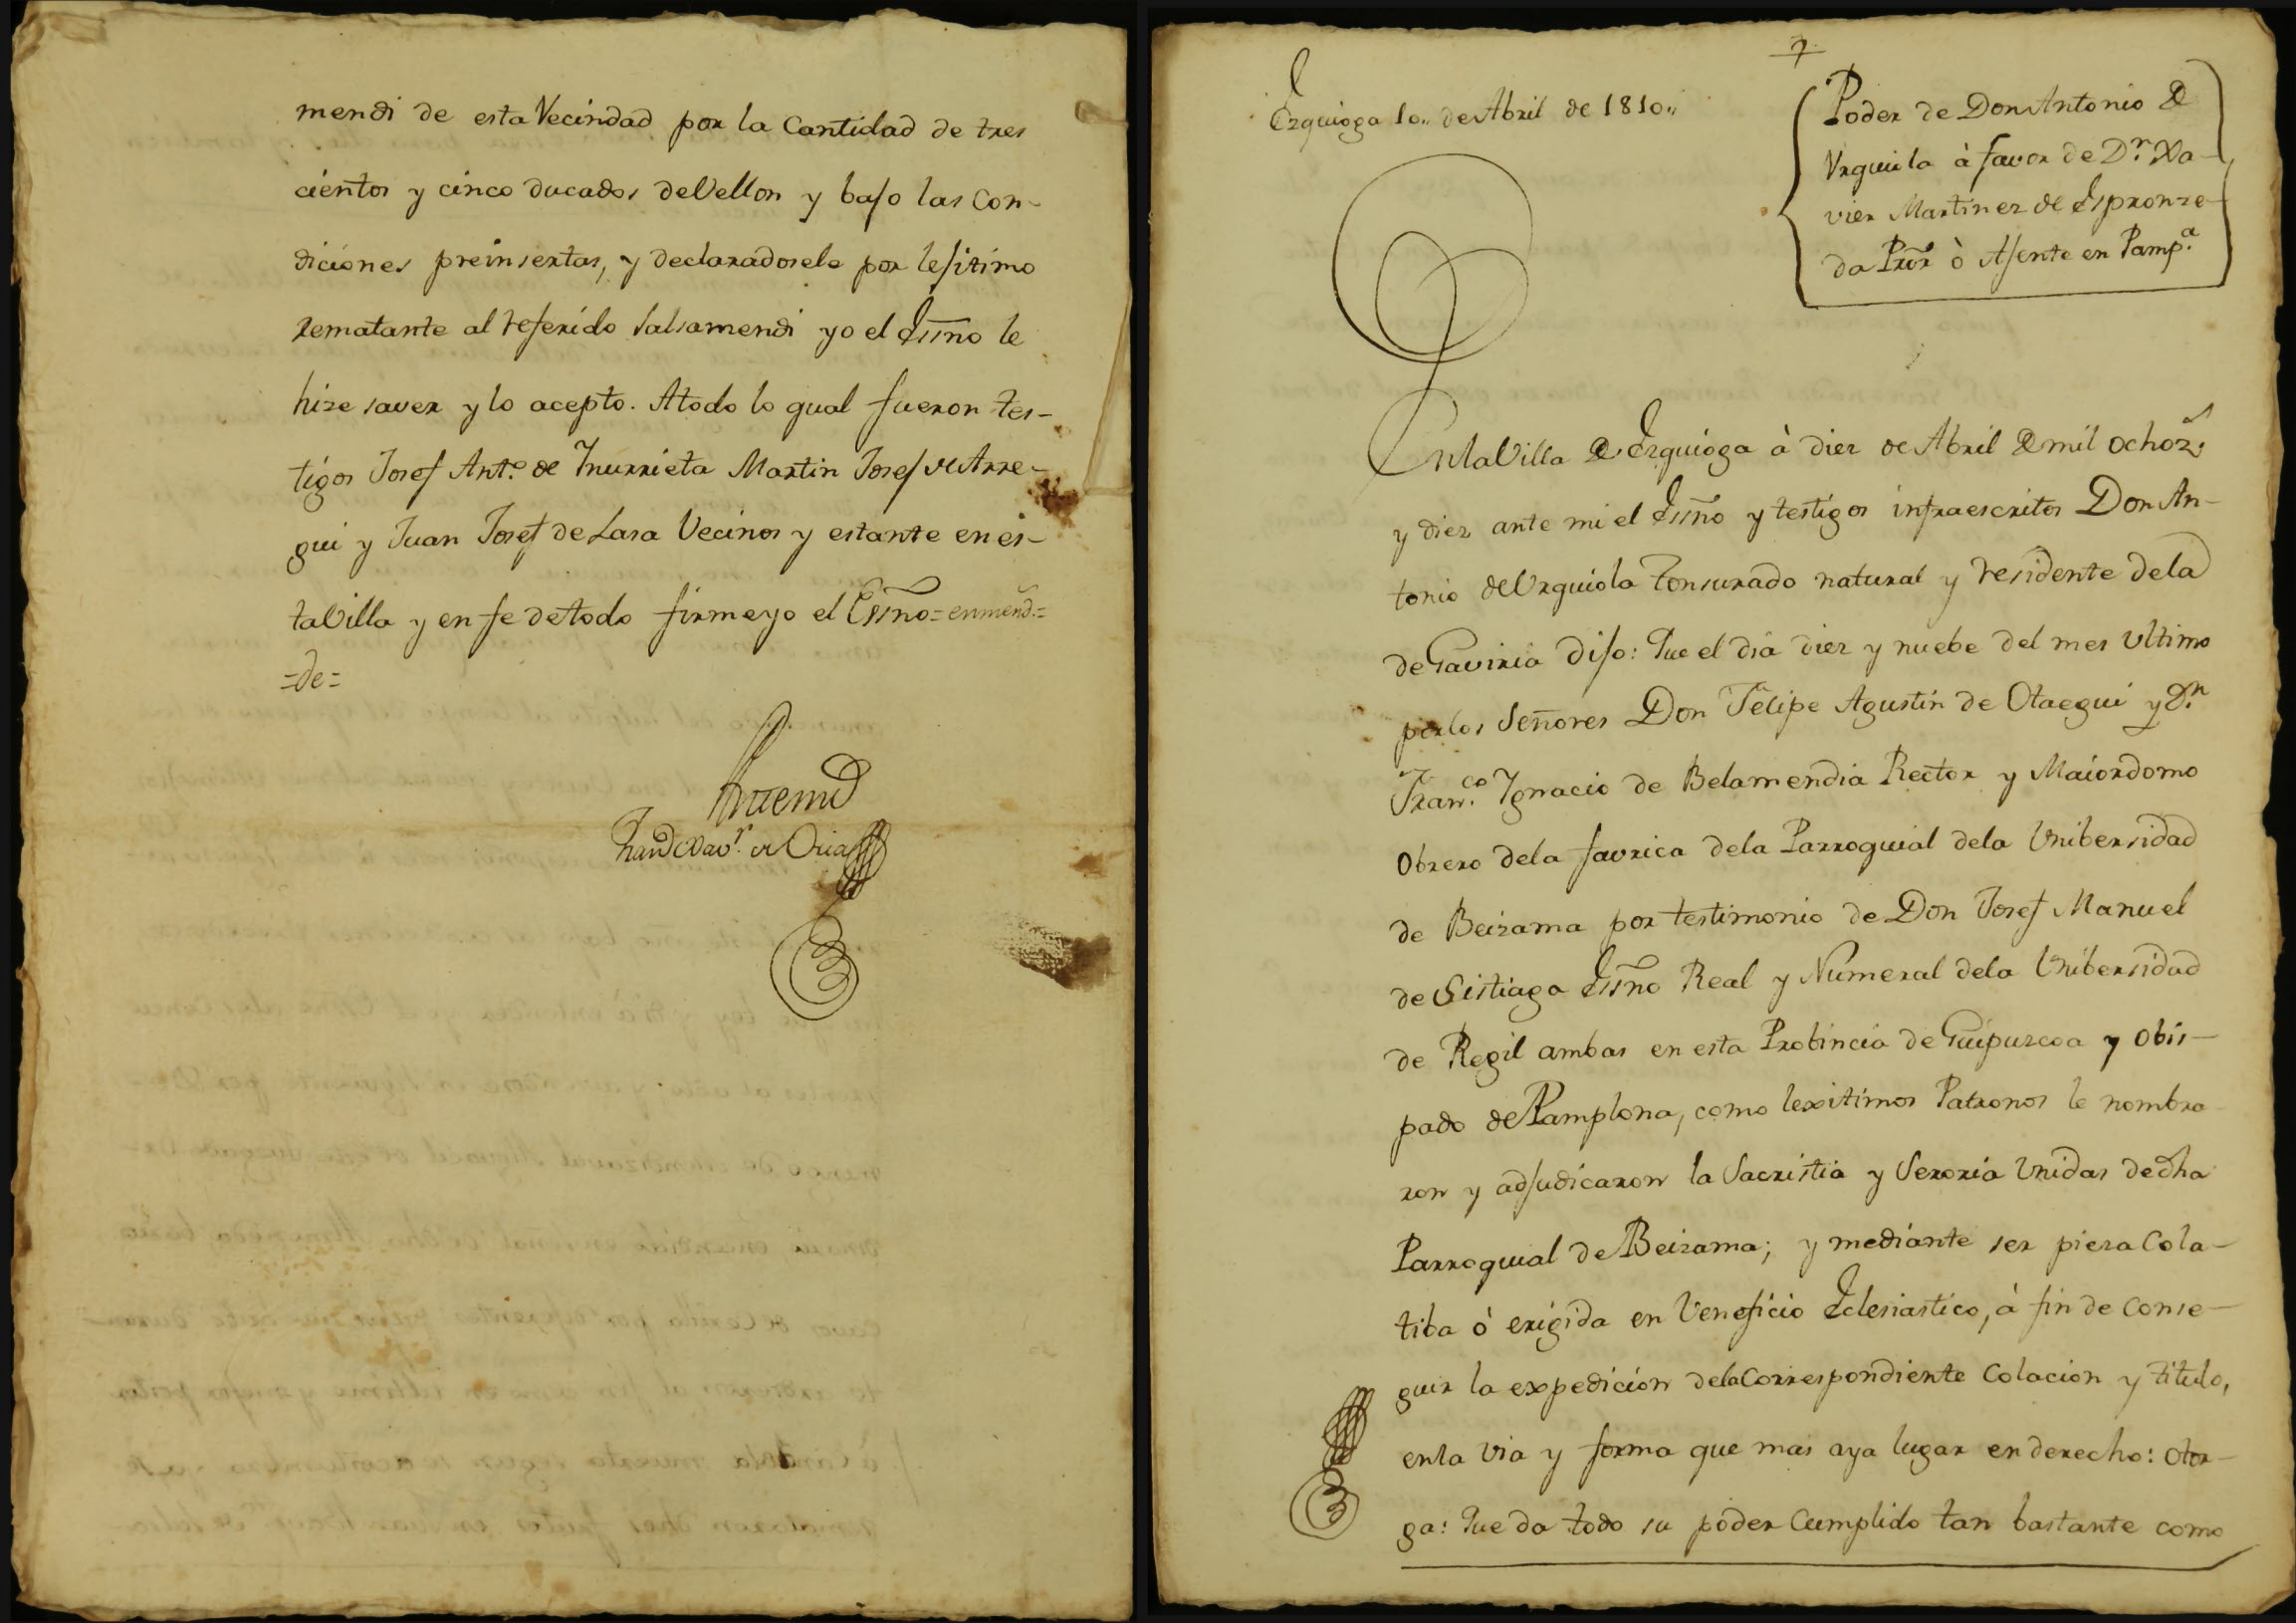 mendi de esta Vecindad por la Cantidad de tres
cientos y cinco ducados de Vellon y bajo las con-
diciones preinsertas, y declaradosele por lejitimo
rematante al referido Salsamendi yo el Essno le
hize saver y lo acepto. Atodo lo qual fueron tes-
tigos Josef Ant.º de Ynurrieta Martin Josef de Arre-
gui y Juan Josef de Lasa Vecinos y estante en es-
ta Villa y en fe de todo firme yo el Essno = enmend.=
=de=
Antemi
Fran.co Xav.r de Oria
7
Ezquioga 10,, de Abril de 1810,,
Poder de Don Antonio de
Vrquiola à favor de D.n Xa-
vier Martinez de Esponze-
da Pror ò Ajente en Pamp.a
En la Villa de Ezquioga à diez de Abril de mil ochoz.s
y diez ante mi el Essno y testigos infraescritos Don An-
tonio de Vrquiola Tonsurado natural y residente dela
de Gaviria dijo: Que el dia diez y nuebe del mes Ultimo
por los Señores Don Felipe Agustin de Otaegui y D.n
Fran.co Ygnacio de Belamendia Rector y Maiordomo
Obrero dela favrica dela Parroquial dela Unibersidad
de Beizama por testimonio de Don Josef Manuel
de Sistiaga Essno Real y Numeral dela Unibersidad
de Regil ambas en esta Probincia de Guipuzcoa y Obis-
pado de Pamplona, como lexitimos Patronos le nombra
ron y adjudicaron la Sacristia y Seroria Unidas de dha
Parroquial de Beizama; y mediante ser pieza Cola-
tiba ò erigida en Veneficio Eclesiastico, à fin de conse-
guir la expedicion dela Correspondiente Colacion y titulo,
en la via y forma que mas aya lugar en derecho: Otor-
ga: Que da todo su poder Cumplido tan bastante como